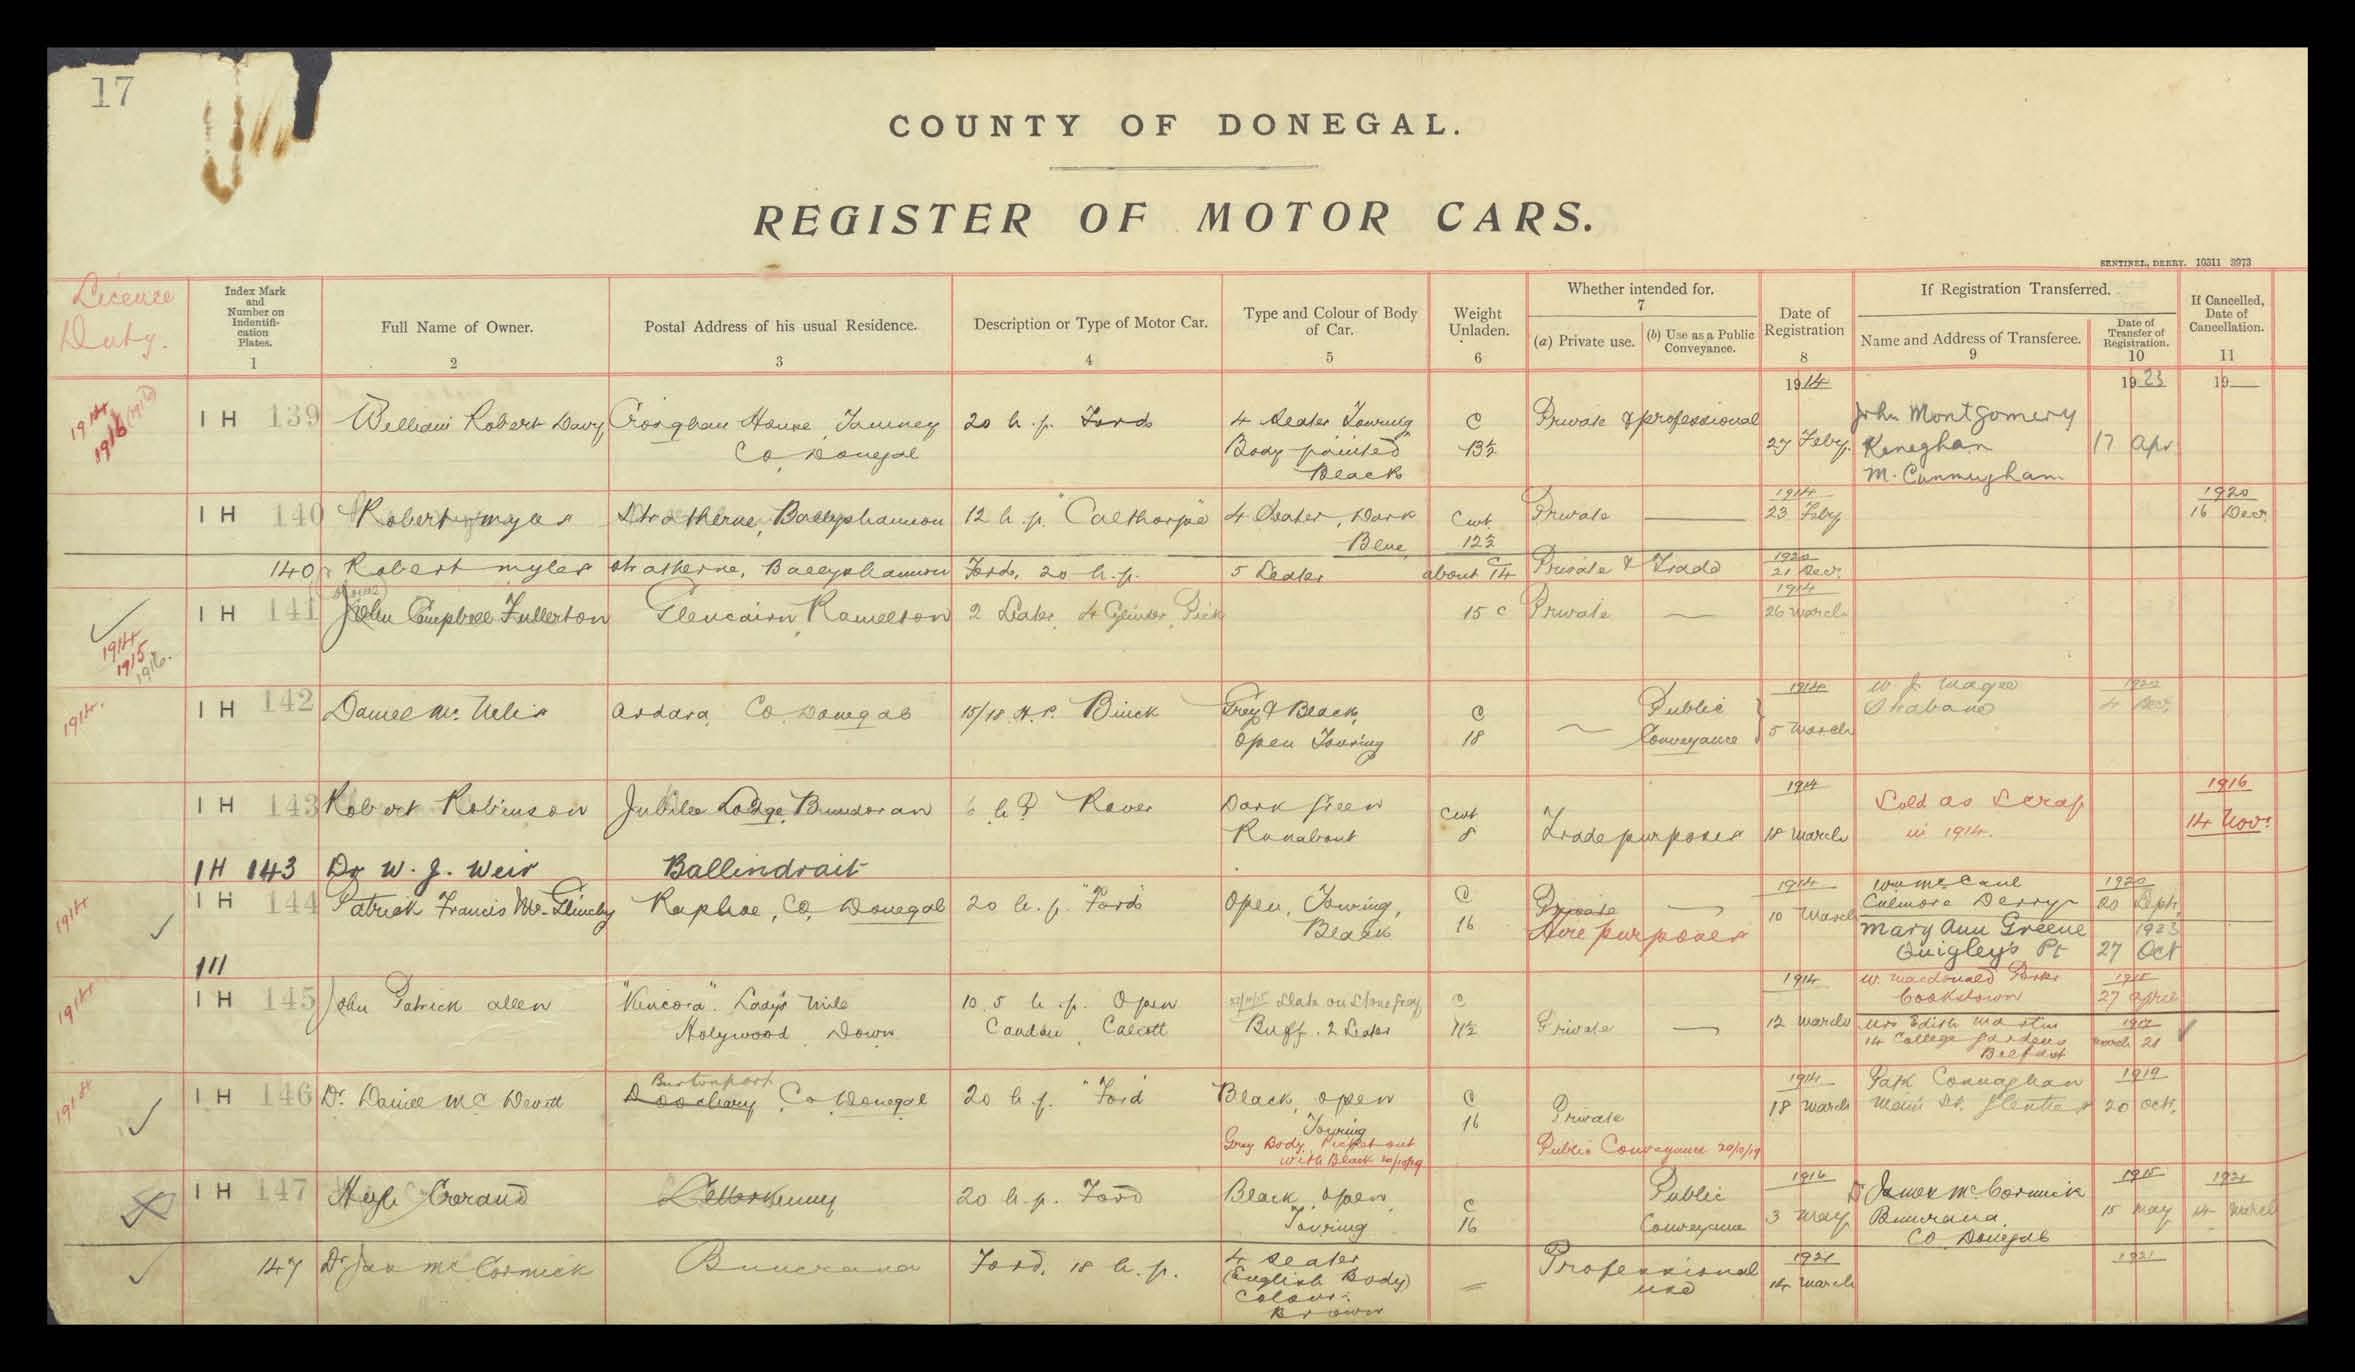 17
COUNTY OF DONEGAL.
REGISTER OF MOTOR CARS.
SENTINEL, DERRY. 10311 3973
Licence Duty.
Index Mark and Number on Identifi-cation Plates. 1
Full Name of Owner. 2
Postal Address of his usual Residence. 3
Description or Type of Motor Car. 4
Type and Colour of Body of Car. 5
Weight Unladen. 6
Whether intended for. 7
(a) Private use.
(b) Use as a Public Conveyance.
Date of Registration 8
If Registration Transferred.
Name and Address of Transferee. 9
Date of Transfer of Registration. 10
If Cancelled, Date of Cancellation. 11
1914 1923 19
1914 1916 (1916) IH 139 William Robert Davy Croaghan House, Tamney 20 h.p. Ford 4 Seater Touring C Private & professional John Montgomery
Co Donegal Body painted 13½ 27 Feby. Keneghan 17 Apr
Black M. Cunningham
IH 140 Robert Myles Stratherne, Ballyshannon 12 h.p. "Calthorpe" 4 Seater, Dark Cwt Private 1914 23 Feby 1920 16 Decr
Blue 12½
140 Robert Myles Stratherne, Ballyshannon Ford, 20 h.p. 5 Seater about C 14 Private & Trade 1920 21 Decr.
1914
IH 141 John Campbell Fullerton Glencairn, Ramelton 2 Seater, 4 Cylinder, 15 C Private 26 March
1914
1915
1916.
1914. IH 142 Daniel Mc Nelis Ardara, Co Donegal 15/18 H.P. Buick Grey & Black, C Public 1914 W. J. Magee 1920
Open Touring 18 Conveyance 5 March Strabane 4 Decr.
IH 143 Robert Robinson Jubilee Lodge, Bundoran 6 h.P Rover Dark Green Cwt 1914 Sold as Scrap 1916
Runabout 8 Trade purposes 18 March in 1914. 14 Novr
IH 143 Dr W. J. Weir Ballindrait
1914 IH 144 Patrick Francis Raphoe, Co, Donegal 20 h.p. "Ford" Open, Touring, C Private 1914 Wm McCaul 1920
Black 16 Hire purposes 10 March Culmore Derry 20 Sept.
Mary Ann Greene 1923
111 Quigley's Pt 27 Oct
1914 IH 145 John Patrick Allen "Kincora". Lady's Mile 10.5 h.p. Open Slate or Stone Grey C 1914 W. Macdonald Parke 1915
Holywood, Down Calcott Buff. 2 Seater 11½ Private 12 March Cookstown 27 April
Mrs Edith Martin 1917
14 College Gardens March 21
Belfast
Burtonport
1914 IH 146 Dr. Daniel Mc Devitt Doochary, Co Donegal 20 h.p. "Ford" Black, open C 1914 Patk Connaghan 1919
Touring 16 Private 18 March Main St. Glenties 20 Oct.
Grey Body Picked out Public Conveyance 20/10/19
with Black 20/10/19
IH 147 Hugh Letterkenny 20 h.p. Ford Black, open, C Public 1914 Dr James McCormick 1915 1921
Touring 16 Conveyance 3 May Buncrana, 15 May 14 March
Co Donegal
147 Dr Jas McCormick Buncrana Ford, 18 h.p. 4 Seater Professional 1921 1921
(English Body) use 14 March
Colour:
Brown